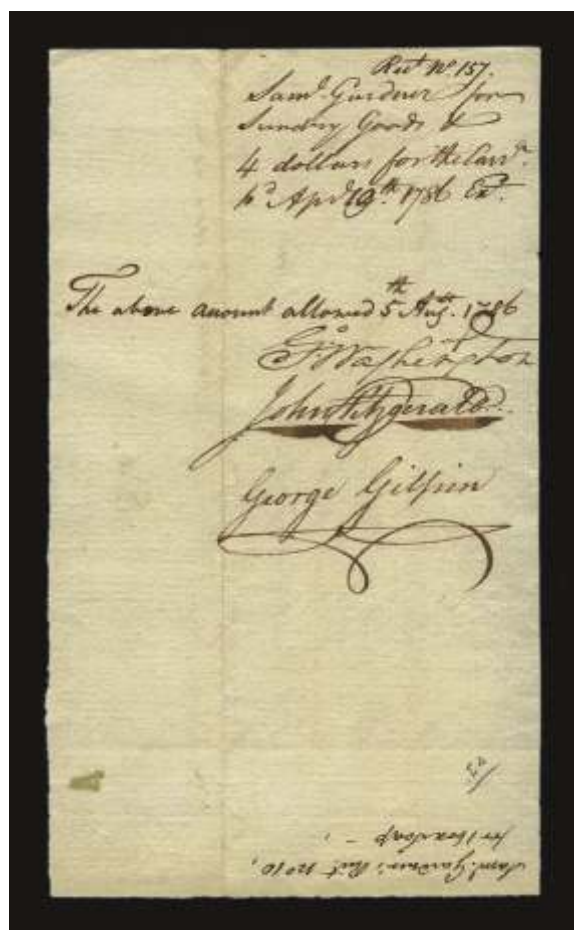 Rect. No. 157.
Saml. Gardner for
Sundry Goods &
4 dollars for the
Apr. 19th. 1786 Ex.
The above amount allowed 5th Augt. 1786
Go. Washington
John Fitzgerald
George Gilpin
Saml. Gardner's Rect No 10,
for